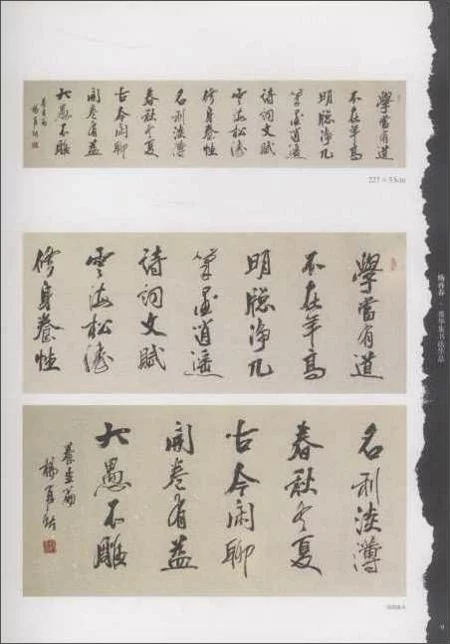 學當有道
不在年高
明聰淨几
筆墨逍遥
詩詞文賦
雲海松濤
修身養性
名利淡薄
春秋冬夏
古今閑聊
開卷有益
大愚不雕
養生篇
227×53cm
學當有道
不在年高
明聰淨几
筆墨逍遥
詩詞文賦
雲海松濤
修身養性
名利淡薄
春秋冬夏
古今閑聊
開卷有益
大愚不雕
養生篇
9